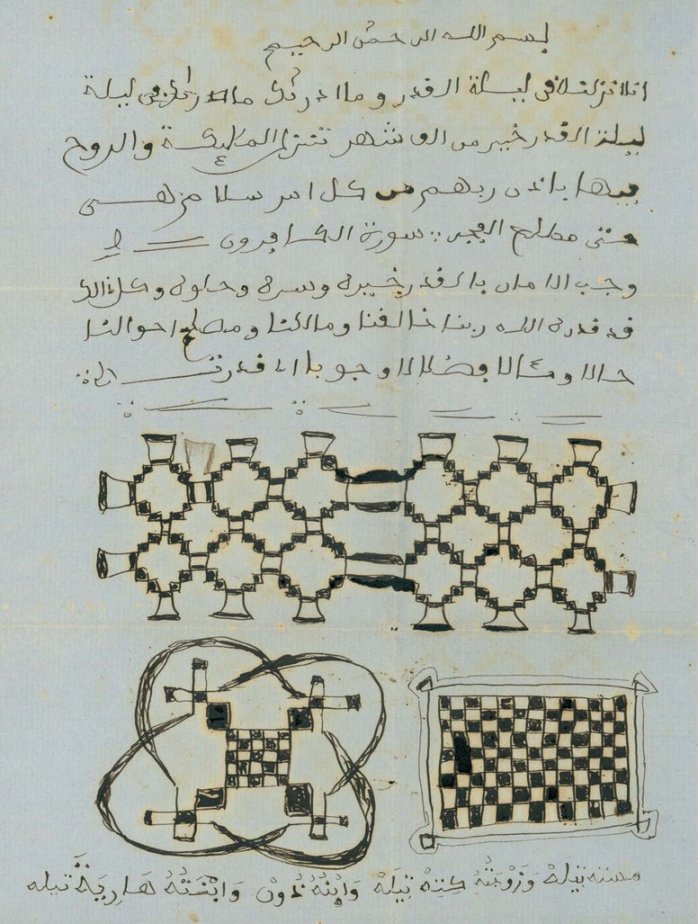 بسم الله الرحمن الرحيم
انا انزلنه في ليلة القدر و ما ادرىك في ليلة
ليلة القدر خير من الف شهر تنزل الملىكة والروح
فيها باذن ربهم من كل امر سلام هي
حتى مطلع الفجر سورة الكافرون
وجب الامان بالقدر خيره وسره وحلوه وكل ذالك
قد قدره الله ربنا خالقنا ومالكنا ومصلح احوالنا
حالا ومئالا وجوبا
تيله وَزَوْجَتُهُ كِتِهْ تِيلَهْ وَابْنُهُ وَابْنَتُهُ هَارِيَةَ تيله